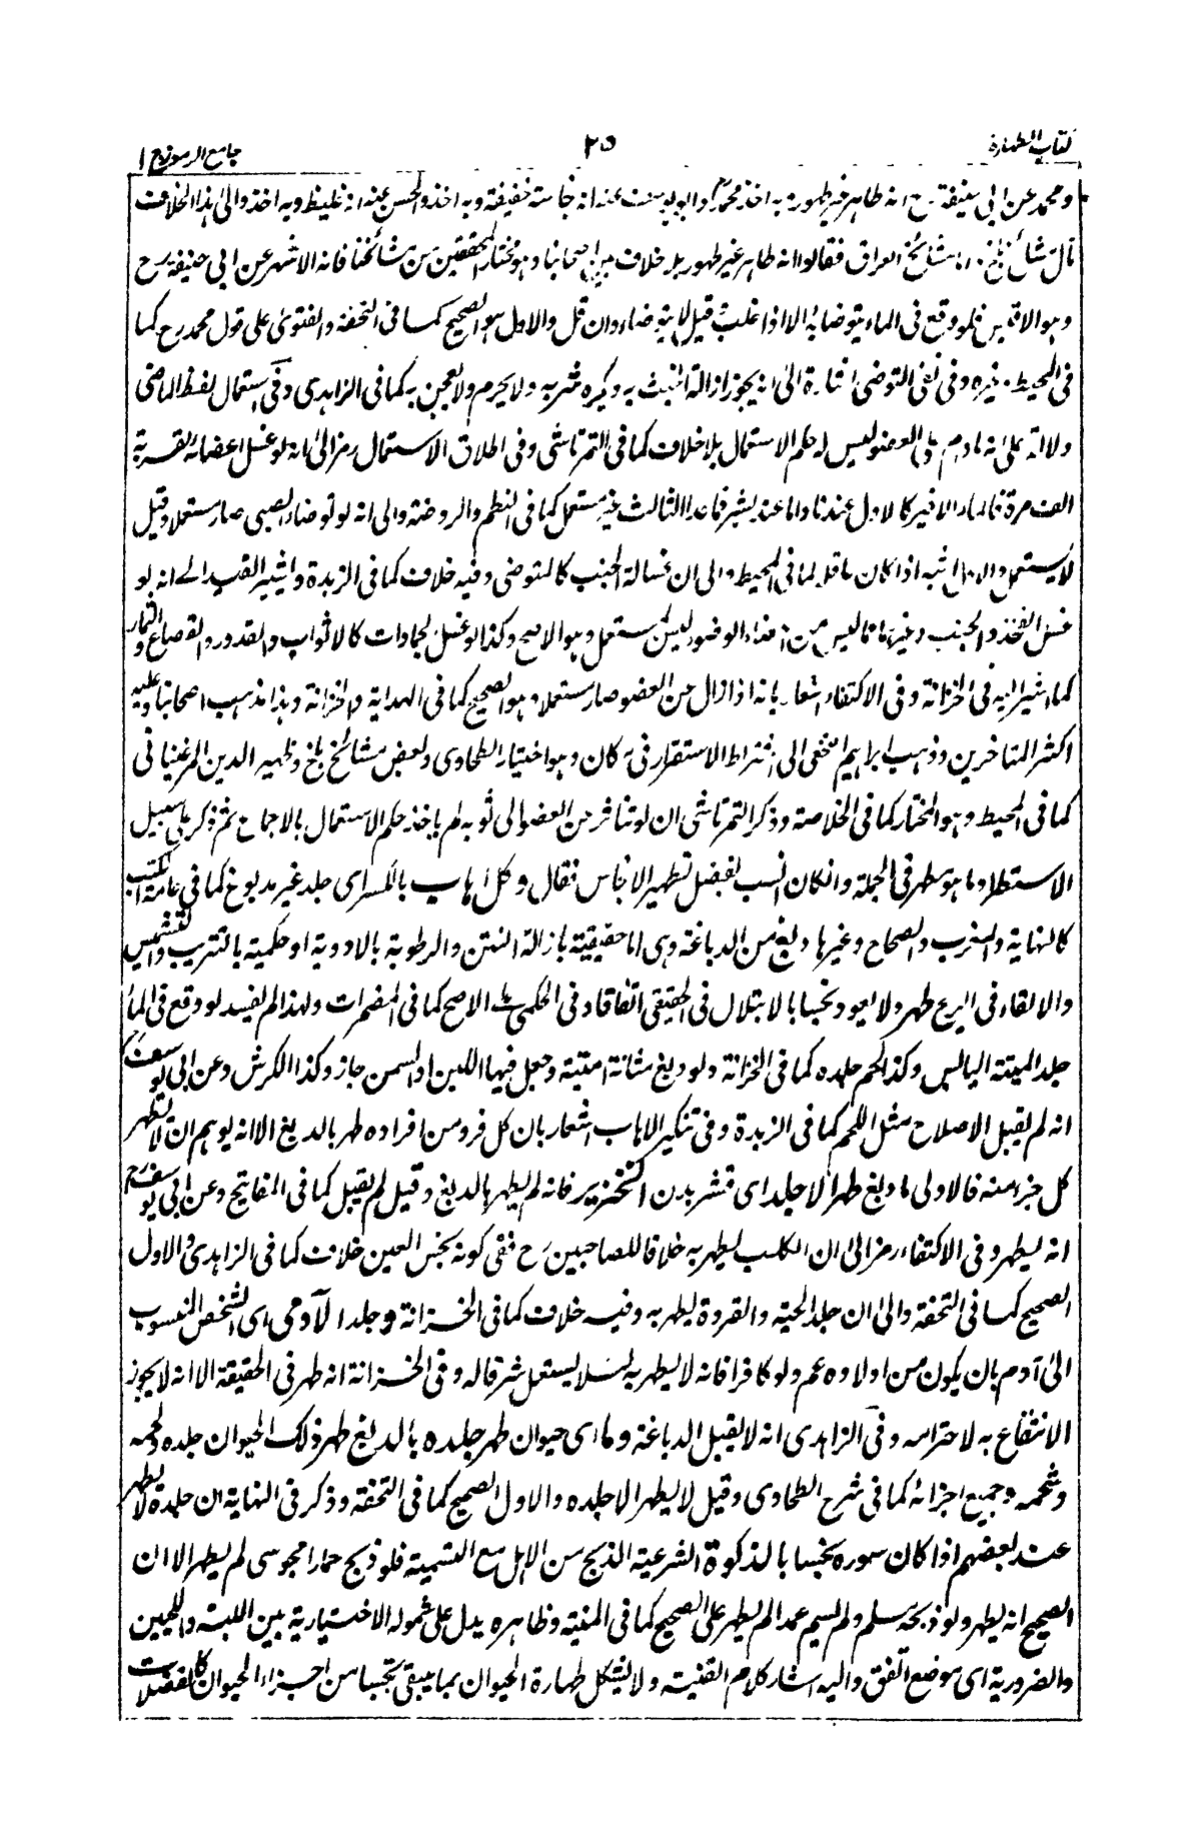 كتاب الطهارة
٢٥
جامع الرموز ج ١
ومحمد عن ابي حنيفة رح انه طاهر غير طهور وبه اخذ محمد رح وابو يوسف عنه انه نجاسة خفيفة وبه اخذ والحسن عنه انه غليظ وبه اخذ والى هذا الخلاف
مال مشائخ بلخ واما مشائخ العراق فقالوا انه طاهر غير طهور بلا خلاف بين اصحابنا وهو مختار المحققين من مشائخنا فانه الاشهر عن ابي حنيفة رح
وهو الاقيس فلو وقع فى الماء يتوضأ به الا اذا غلب وقيل لا يتوضاء وان قل والاول هو الصحيح كما فى التحفة والفتوى على قول محمد رح كما
فى المحيط وغيره وفى نفى التوضى اشارة الى انه يجوز ازالة الخبث به ويكره شربه ولا يحرم ولا يعجن به كما فى الزاهدى وفى استعمال لفظ الماضى
دلالة على انه مادام على العضو ليس له حكم الاستعمال بلا خلاف كما فى التمرتاشى وفى اطلاق الاستعمال رمز الى انه لو غسل اعضائه لقربة
الف مرة فالماء الاخير كالاول عندنا واما عند بشر فما عدا الثالث غير مستعمل كما فى النظم والروضة والى انه لو توضاء الصبى صار مستعملا وقيل
لا يستعمل والاول اشبه اذا كان عاقلا كما فى المحيط والى ان غسالة الجنب كالمتوضى وفيه خلاف كما فى الزبدة ويشير القيد الى انه لو
غسل الفخذ والجنب وغيرهما مما ليس من اعضاء الوضوء ليس بمستعمل وهو الاصح وكذا لو غسل الجمادات كالاثواب والقدور والقصاع والثمار
كما اشير اليه فى الخزانة وفى الاكتفاء اشعار بانه اذا زال عن العضو صار مستعملا وهو الصحيح كما فى الهداية والخزانة وهذا مذهب اصحابنا وعليه
اكثر المتاخرين وذهب ابراهيم النخعى الى اشتراط الاستقرار فى مكان وهو اختيار الطحاوى وبعض مشائخ بلخ وظهير الدين المرغينانى
كما فى المحيط وهو المختار كما فى الخلاصة وذكر التمرتاشى ان لو تناثر من العضو الى ثوبه لم ياخذ حكم الاستعمال بالاجماع ثم ذكر على سبيل
الاستطراد ما هو مطهر فى الجملة وان كان انسب لفصل تطهير الانجاس فقال وكل اهاب بالكسر اى جلد غير مدبوغ كما فى عامة الكتب
كالنهاية والمغرب والصحاح وغيرها دبغ من الدباغة وهى اما حقيقية بازالة النتن والرطوبة بالادوية او حكمية بالتتريب والتشميس
والالقاء فى الريح طهر ولا يعود نجسا بالابتلال فى الحقيقى اتفاقا وفى الحكمى على الاصح كما فى المضمرات ولهذا لم يفسد لو وقع فى الماء
جلد الميتة اليابس وكذا لحم جلده كما فى الخزانة ولو دبغ مثانة الميتة وجعل فيها اللبن او السمن جاز وكذا الكرش وعن ابى يوسف
انه لم يقبل الاصلاح مثل اللحم كما فى الزبدة وفى تنكير الاهاب اشعار بان كل فرد من افراده طهر بالدبغ الا انه يوهم ان لا يطهر
كل جزء منه فالاولى ما دبغ طهر الا جلد اى قشر بدن الخنزير فانه لم يطهر بالدبغ وقيل لم يقبل كما فى المفاتيح وعن ابى يوسف رح
انه يطهر وفى الاكتفاء رمز الى ان الكلب يطهر به خلافا للصاحبين رح ففى كونه نجس العين خلاف كما فى الزاهدى والاول
الصحيح كما فى التحفة والى ان جلد الحية والقردة يطهر به وفيه خلاف كما فى الخزانة وجلد الآدمى اى الشخص المنسوب
الى آدم بان يكون من اولاده عم ولو كافرا فانه لا يطهر به لئلا يستعمل شرفا له وفى الخزانة انه طهر فى الحقيقة الا انه لا يجوز
الانتفاع به لاحترامه وفى الزاهدى انه لا يقبل الدباغة وما اى حيوان طهر جلده بالدبغ طهر ذلك الحيوان جلده ولحمه
وشحمه وجميع اجزائه كما فى شرح الطحاوى وقيل لا يطهر الا جلده والاول الصحيح كما فى التحفة وذكر فى النهاية ان جلده لا يطهر
عند بعضهم اذا كان سوره نجسا بالذكوة الشرعية الذبح من الاهل مع التسمية فلو ذبح حمارا مجوسى لم يطهر الا ان
الصحيح انه يطهر ولو ذبحه مسلم ولم يسم عمدا لم يطهر على الصحيح كما فى المنية وظاهره يدل على شموله الاختيارية بين اللبة واللحيين
والضرورية اى موضع اتفق واليه اشار كلام القنية ولا يشكل طهارة الحيوان بما يبقى نجسا من اجزاء الحيوان كالفضلات